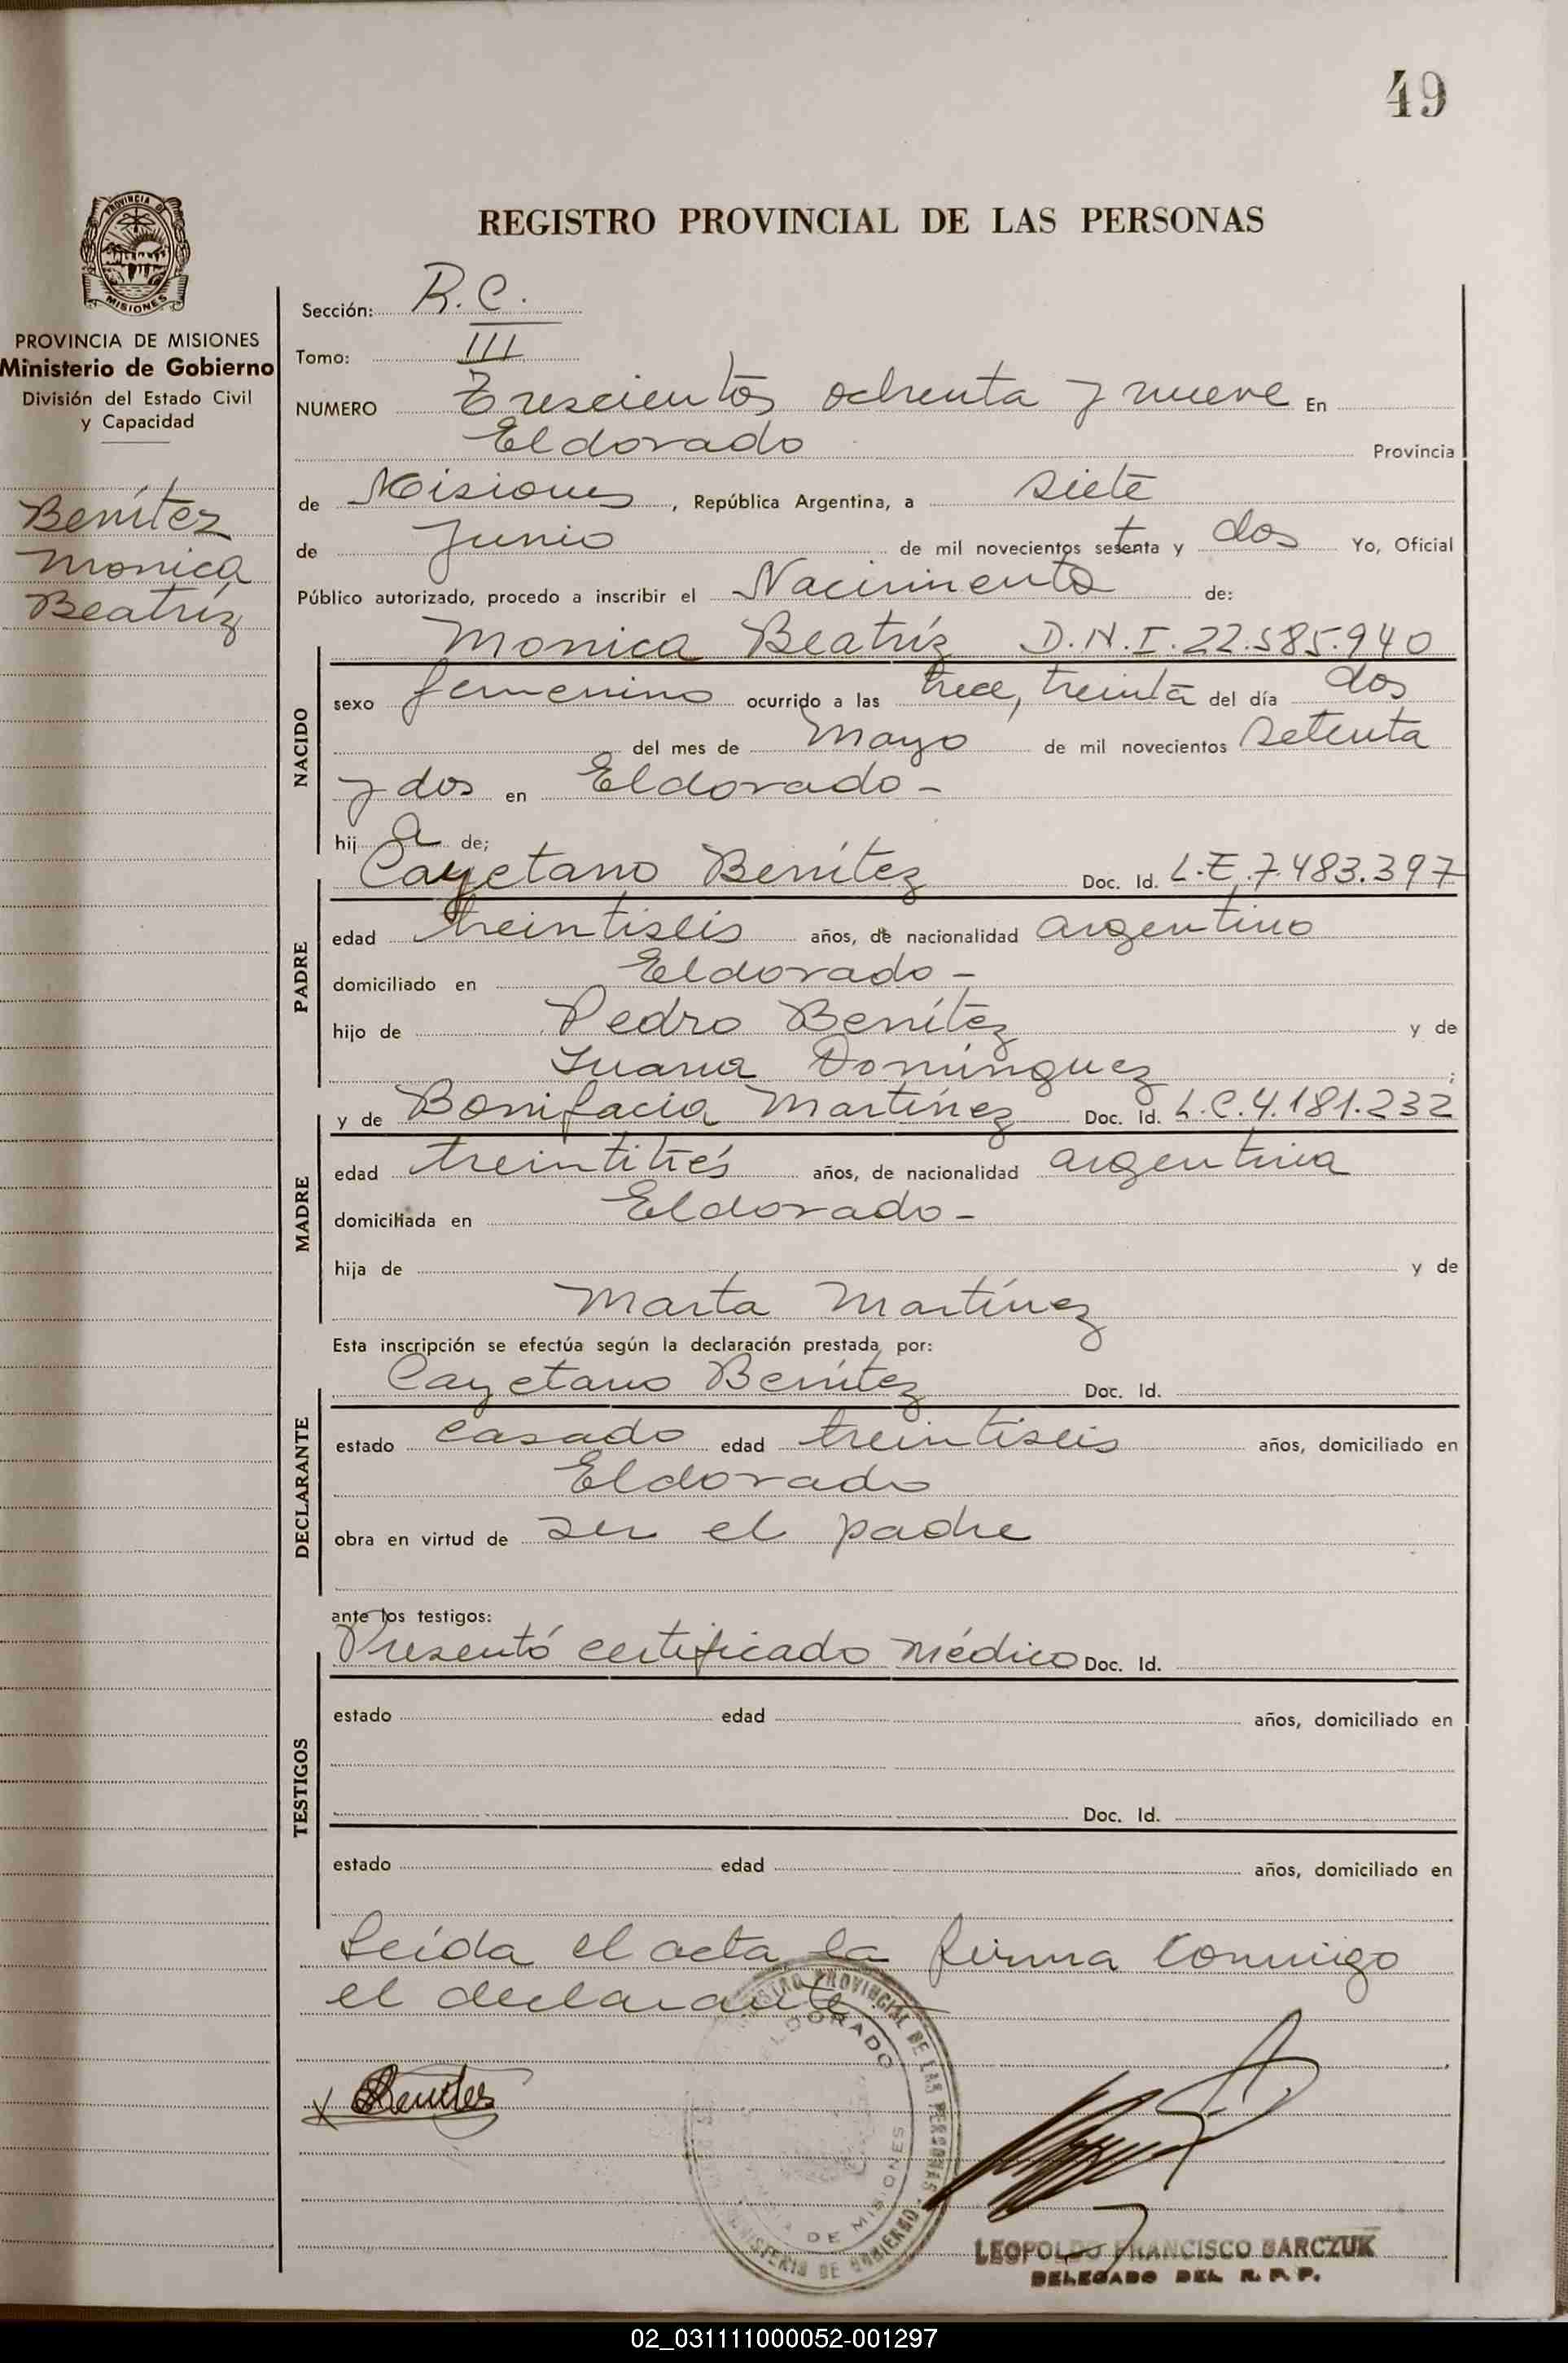 49
PROVINCIA DE
MISIONES
PROVINCIA DE MISIONES
Ministerio de Gobierno
División del Estado Civil
y Capacidad
Benítez
Monica
Beatríz
REGISTRO PROVINCIAL DE LAS PERSONAS
Sección: R.C.
Tomo: III
NUMERO Trescientos ochenta y nueve En
Eldorado Provincia
de Misiones, República Argentina, a siete
de Junio de mil novecientos setenta y dos Yo, Oficial
Público autorizado, procedo a inscribir el Nacimiento de:
NACIDO
Monica Beatríz D.N.I. 22.585.940
sexo femenino ocurrido a las trece, treinta del día dos
del mes de Mayo de mil novecientos setenta
y dos en Eldorado-
hij a de;
PADRE
Cayetano Benítez Doc. Id. L.E. 7.483.397
edad treintiseis años, de nacionalidad argentino
domiciliado en Eldorado-
hijo de Pedro Benítez y de
Juana Domínguez;
MADRE
y de Bonifacia Martínez Doc. Id. L.C. 4.181.232
edad treintitrés años, de nacionalidad argentina
domiciliada en Eldorado-
hija de y de
Marta Martínez
Esta inscripción se efectúa según la declaración prestada por:
DECLARANTE
Cayetano Benítez Doc. Id.
estado casado edad treintiseis años, domiciliado en
Eldorado
obra en virtud de ser el padre
ante los testigos:
TESTIGOS
Presentó certificado médico Doc. Id.
estado edad años, domiciliado en
Doc. Id.
estado edad años, domiciliado en
Leída el acta la firma conmigo
el declarante
REGISTRO PROVINCIAL DE LAS PERSONAS
ELDORADO
DE MISIONES
MINISTERIO DE GOBIERNO
x Benites
LEOPOLDO FRANCISCO BARCZUK
DELEGADO DEL R. P. P.
02_031111000052-001297